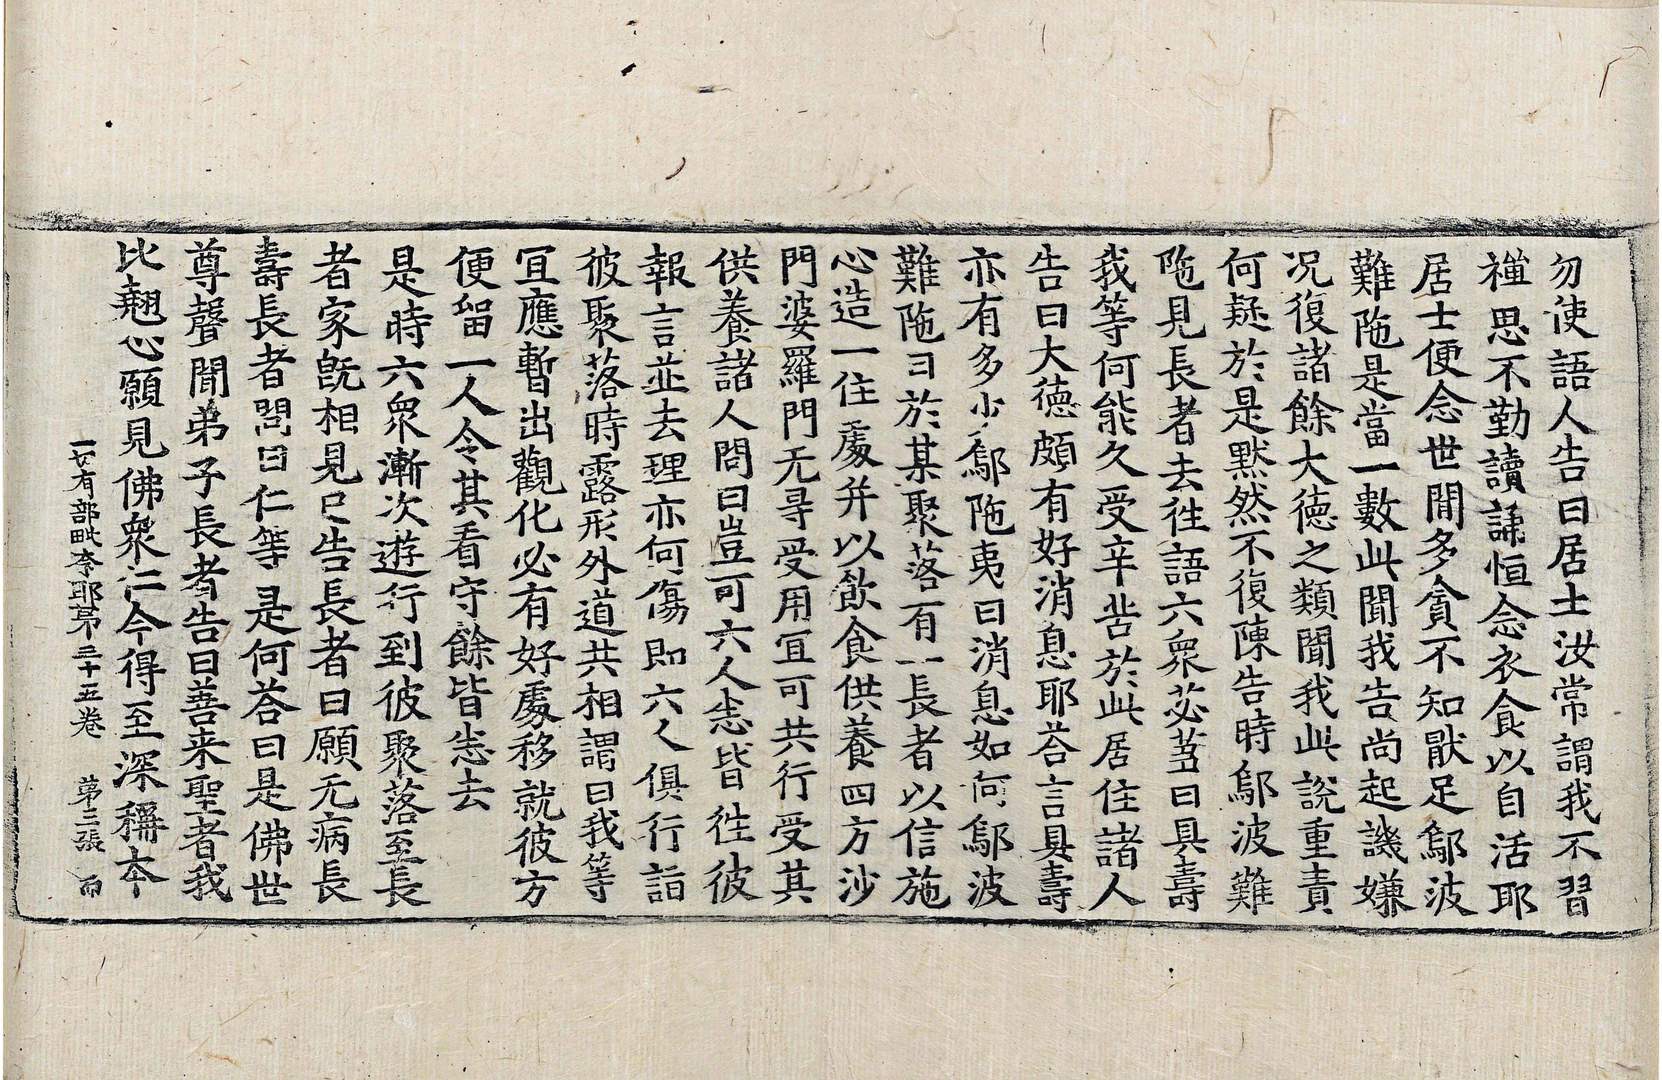 勿使語人告曰居士汝常謂我不習
禪思不勤讀誦恒念衣食以自活耶
居士便念世間多貪不知猒足鄔波
難陁是當一數此聞我告尚起譏嫌
况復諸餘大德之類聞我此說重責
何疑於是默然不復陳告時鄔波難
陁見長者去徃語六衆苾芻曰具壽
我等何能久受辛苦於此居住諸人
告曰大德頗有好消息耶荅言具壽
亦有多少鄔陁夷曰消息如何鄔波
難陁曰於某聚落有一長者以信施
心造一住處并以飲食供養四方沙
門婆羅門无㝵受用冝可共行受其
供養諸人問曰豈可六人悉皆徃彼
報言並去理亦何傷即六人俱行詣
彼聚落時露形外道共相謂曰我等
冝應暫出觀化必有好處移就彼方
便留一人令其看守餘皆悉去
是時六衆漸次遊行到彼聚落至長
者家旣相見已告長者曰願无病長
壽長者問曰仁等是何荅曰是佛世
尊聲聞弟子長者告曰善来聖者我
比翹心願見佛衆仁今得至深稱本
一切有部毗奈耶第三十五卷 第三張 而